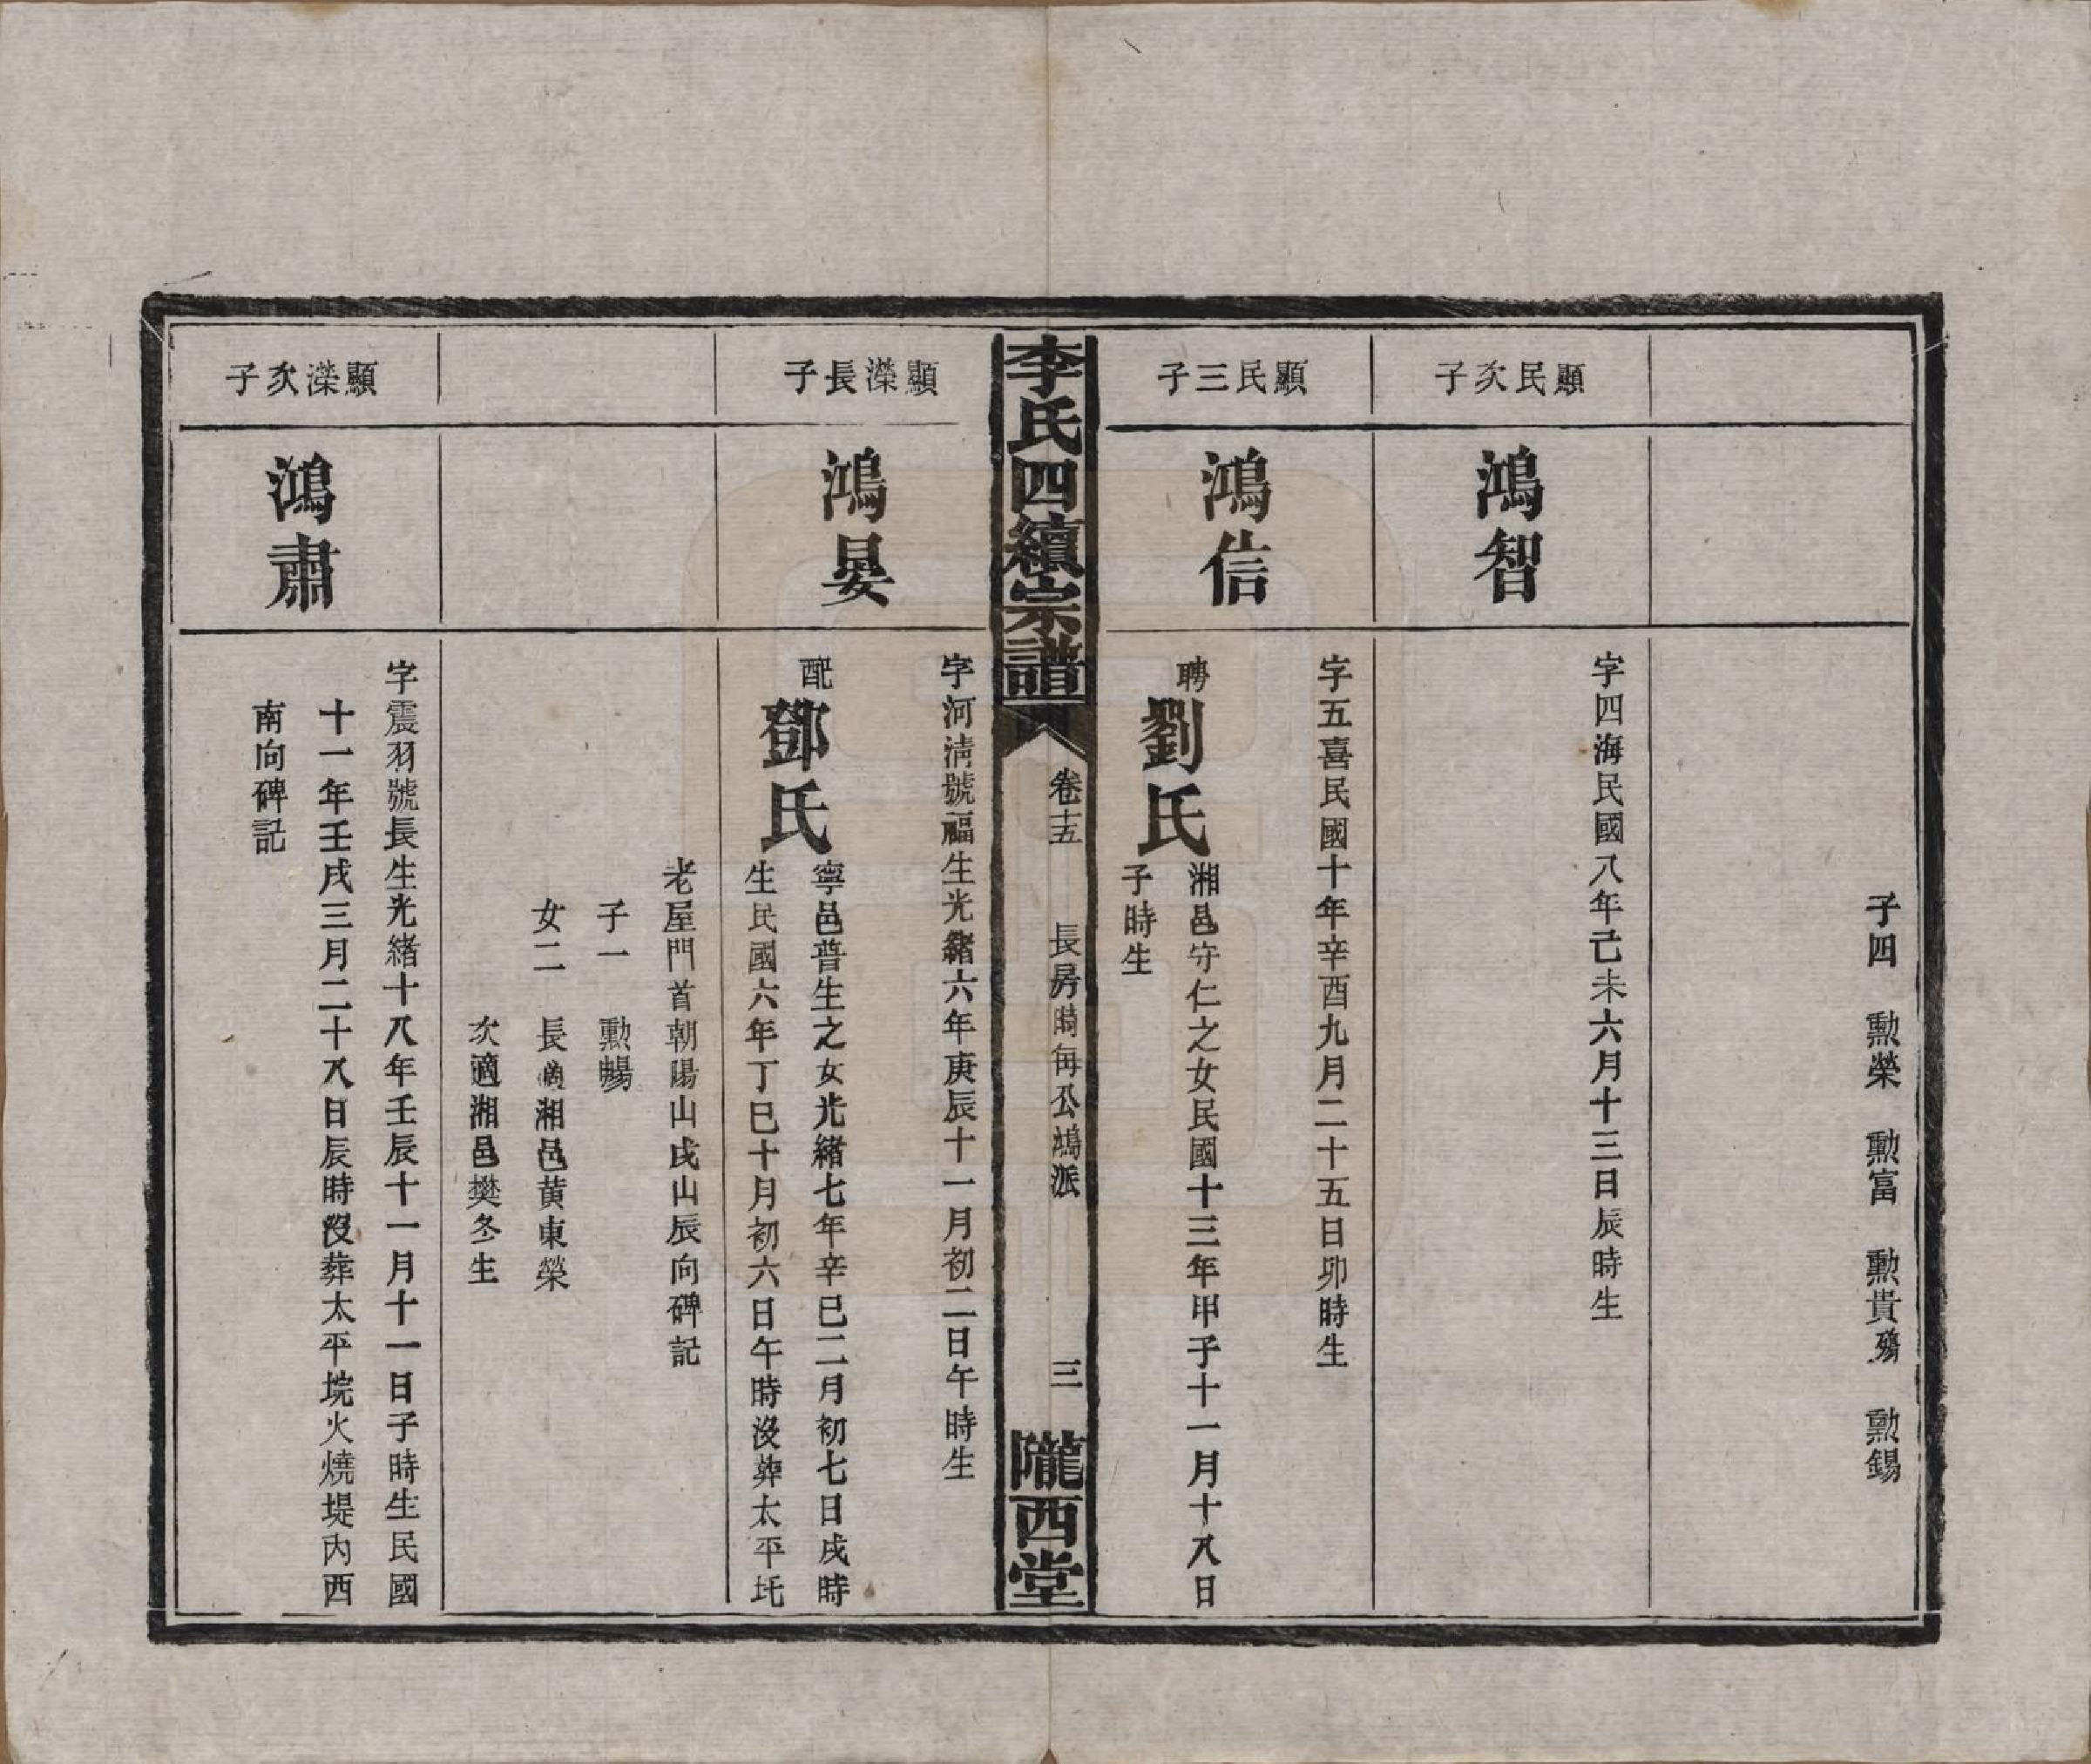 子四　勲榮　勲富　勲貴殤　勲錫
顯民次子
鴻智
字四海民國八年己未六月十三日辰時生
顯民三子
鴻信
字五喜民國十年辛酉九月二十五日卯時生
聘劉氏
湘邑守仁之女民國十三年甲子十一月十八日
子時生
李氏四續宗譜
卷十五
長房時每公鴻派
三
隴西堂
顯濚長子
鴻晏
字河淸號福生光緒六年庚辰十一月初二日午時生
配鄧氏
寧邑普生之女光緒七年辛巳二月初七日戌時
生民國六年丁巳十月初六日午時沒葬太平圫
老屋門首朝陽山戌山辰向碑記
子一　勲暢
女二　長適湘邑黃東榮
次適湘邑樊冬生
顯濚次子
鴻肅
字震羽號長生光緒十八年壬辰十一月十一日子時生民國
十一年壬戌三月二十八日辰時沒葬太平垸火燒堤內西
南向碑記